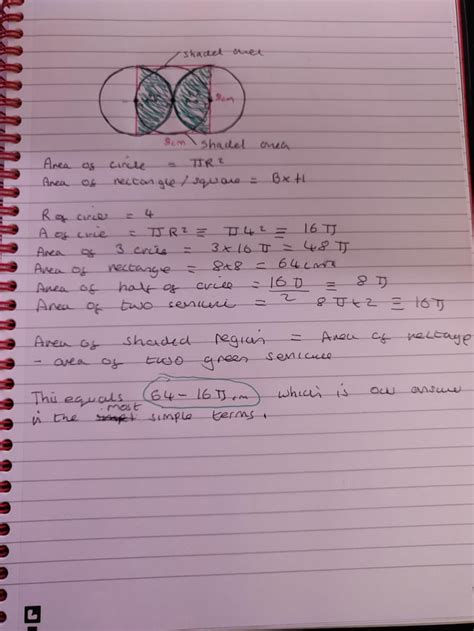 shaded area
8cm
8cm
shaded area
Area of circle = πR²
Area of rectangle/square = B×H
R of circles = 4
A of circle = πR² ≡ π4² ≡ 16π
Area of 3 circles = 3×16π = 48π
Area of rectangle = 8×8 = 64cm²
Area of half of circles = 16π/2 ≡ 8π
Area of two semicircle = 8π×2 ≡ 16π
Area of shaded region = Area of rectangle
- area of two green semicircle
This equals 64-16π which is our answer
in the most simple terms.